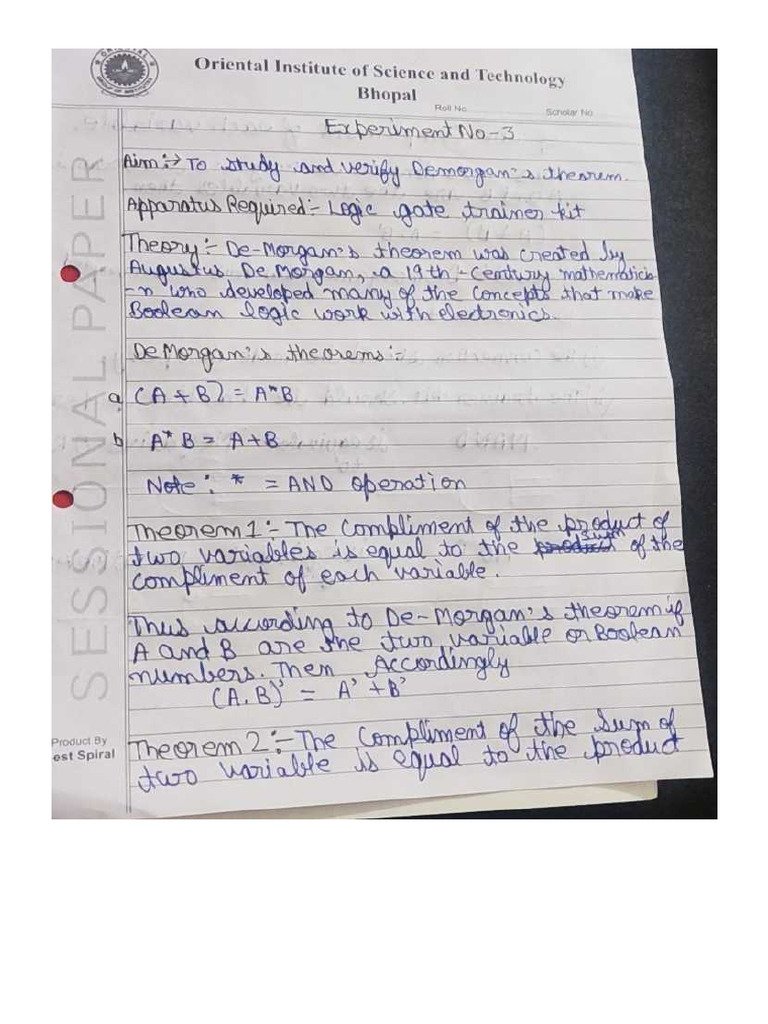 Oriental Institute of Science and Technology
Bhopal
Roll No
Scholar No
Experiment No-3
Aim:-> To study and verify Demorgan's theorem.
Apparatus Required:- Logic gate trainer kit
Theory:- De-Morgan's theorem was created by
Augustus De Morgan, a 19th-Century mathematicia
-n who developed many of the concepts that make
Boolean logic work with electronics.
DeMorgan's theorems:-
a (A + B) = A*B
b A* B = A+B
Note: * = AND operation
Theorem 1:- The compliment of the product of
two variables is equal to the product sum of the
compliment of each variable.
Thus according to De-Morgan's theorem if
A and B are the two variable or Boolean
numbers. Then Accordingly
(A.B)' = A' + B'
Theorem 2:- The compliment of the sum of
two variable is equal to the product
SESSIONAL PAPER
Product By
est Spiral